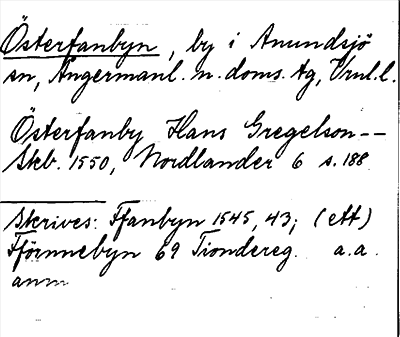 Österfanbyn, by i Anundsjö
sn, Ångermanl. n. doms. tg, Vnl. l.
Österfanby Hans Gregelson--
Skb. 1550, Nordlander 6 s. 188
Skrives: Ffanbyn 1545, 43; (ett)
Fförnnebyn 69 Tiondereg. a.a.
anm